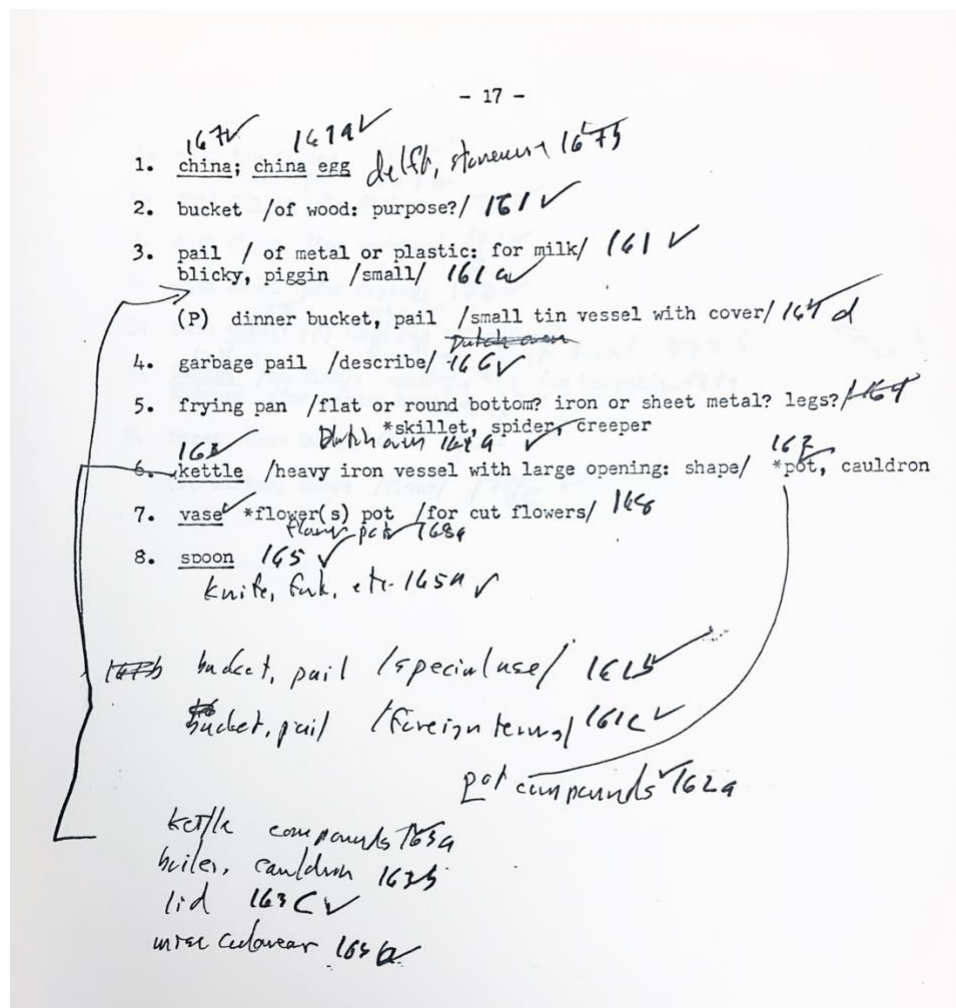 - 17 -
167 167a
1. china; china egg delft, stoneware 167b
2. bucket /of wood: purpose?/ 161
3. pail / of metal or plastic: for milk/ 161
blicky, piggin /small/ 161a
(P) dinner bucket, pail /small tin vessel with cover/ 161d
Dutch oven
4. garbage pail /describe/ 166
5. frying pan /flat or round bottom? iron or sheet metal? legs?/ 164
*skillet, spider, creeper
Dutch oven 164a
163 162
6. kettle /heavy iron vessel with large opening: shape/ *pot, cauldron
7. vase *flower(s) pot /for cut flowers/ 168
flower pot 168a
8. spoon 165
knife, fork, etc. 165a
bucket, pail /special use/ 161b
bucket, pail /foreign terms/ 161c
pot compounds 162a
kettle compounds 163a
boiler, cauldron 163b
lid 163c
misc